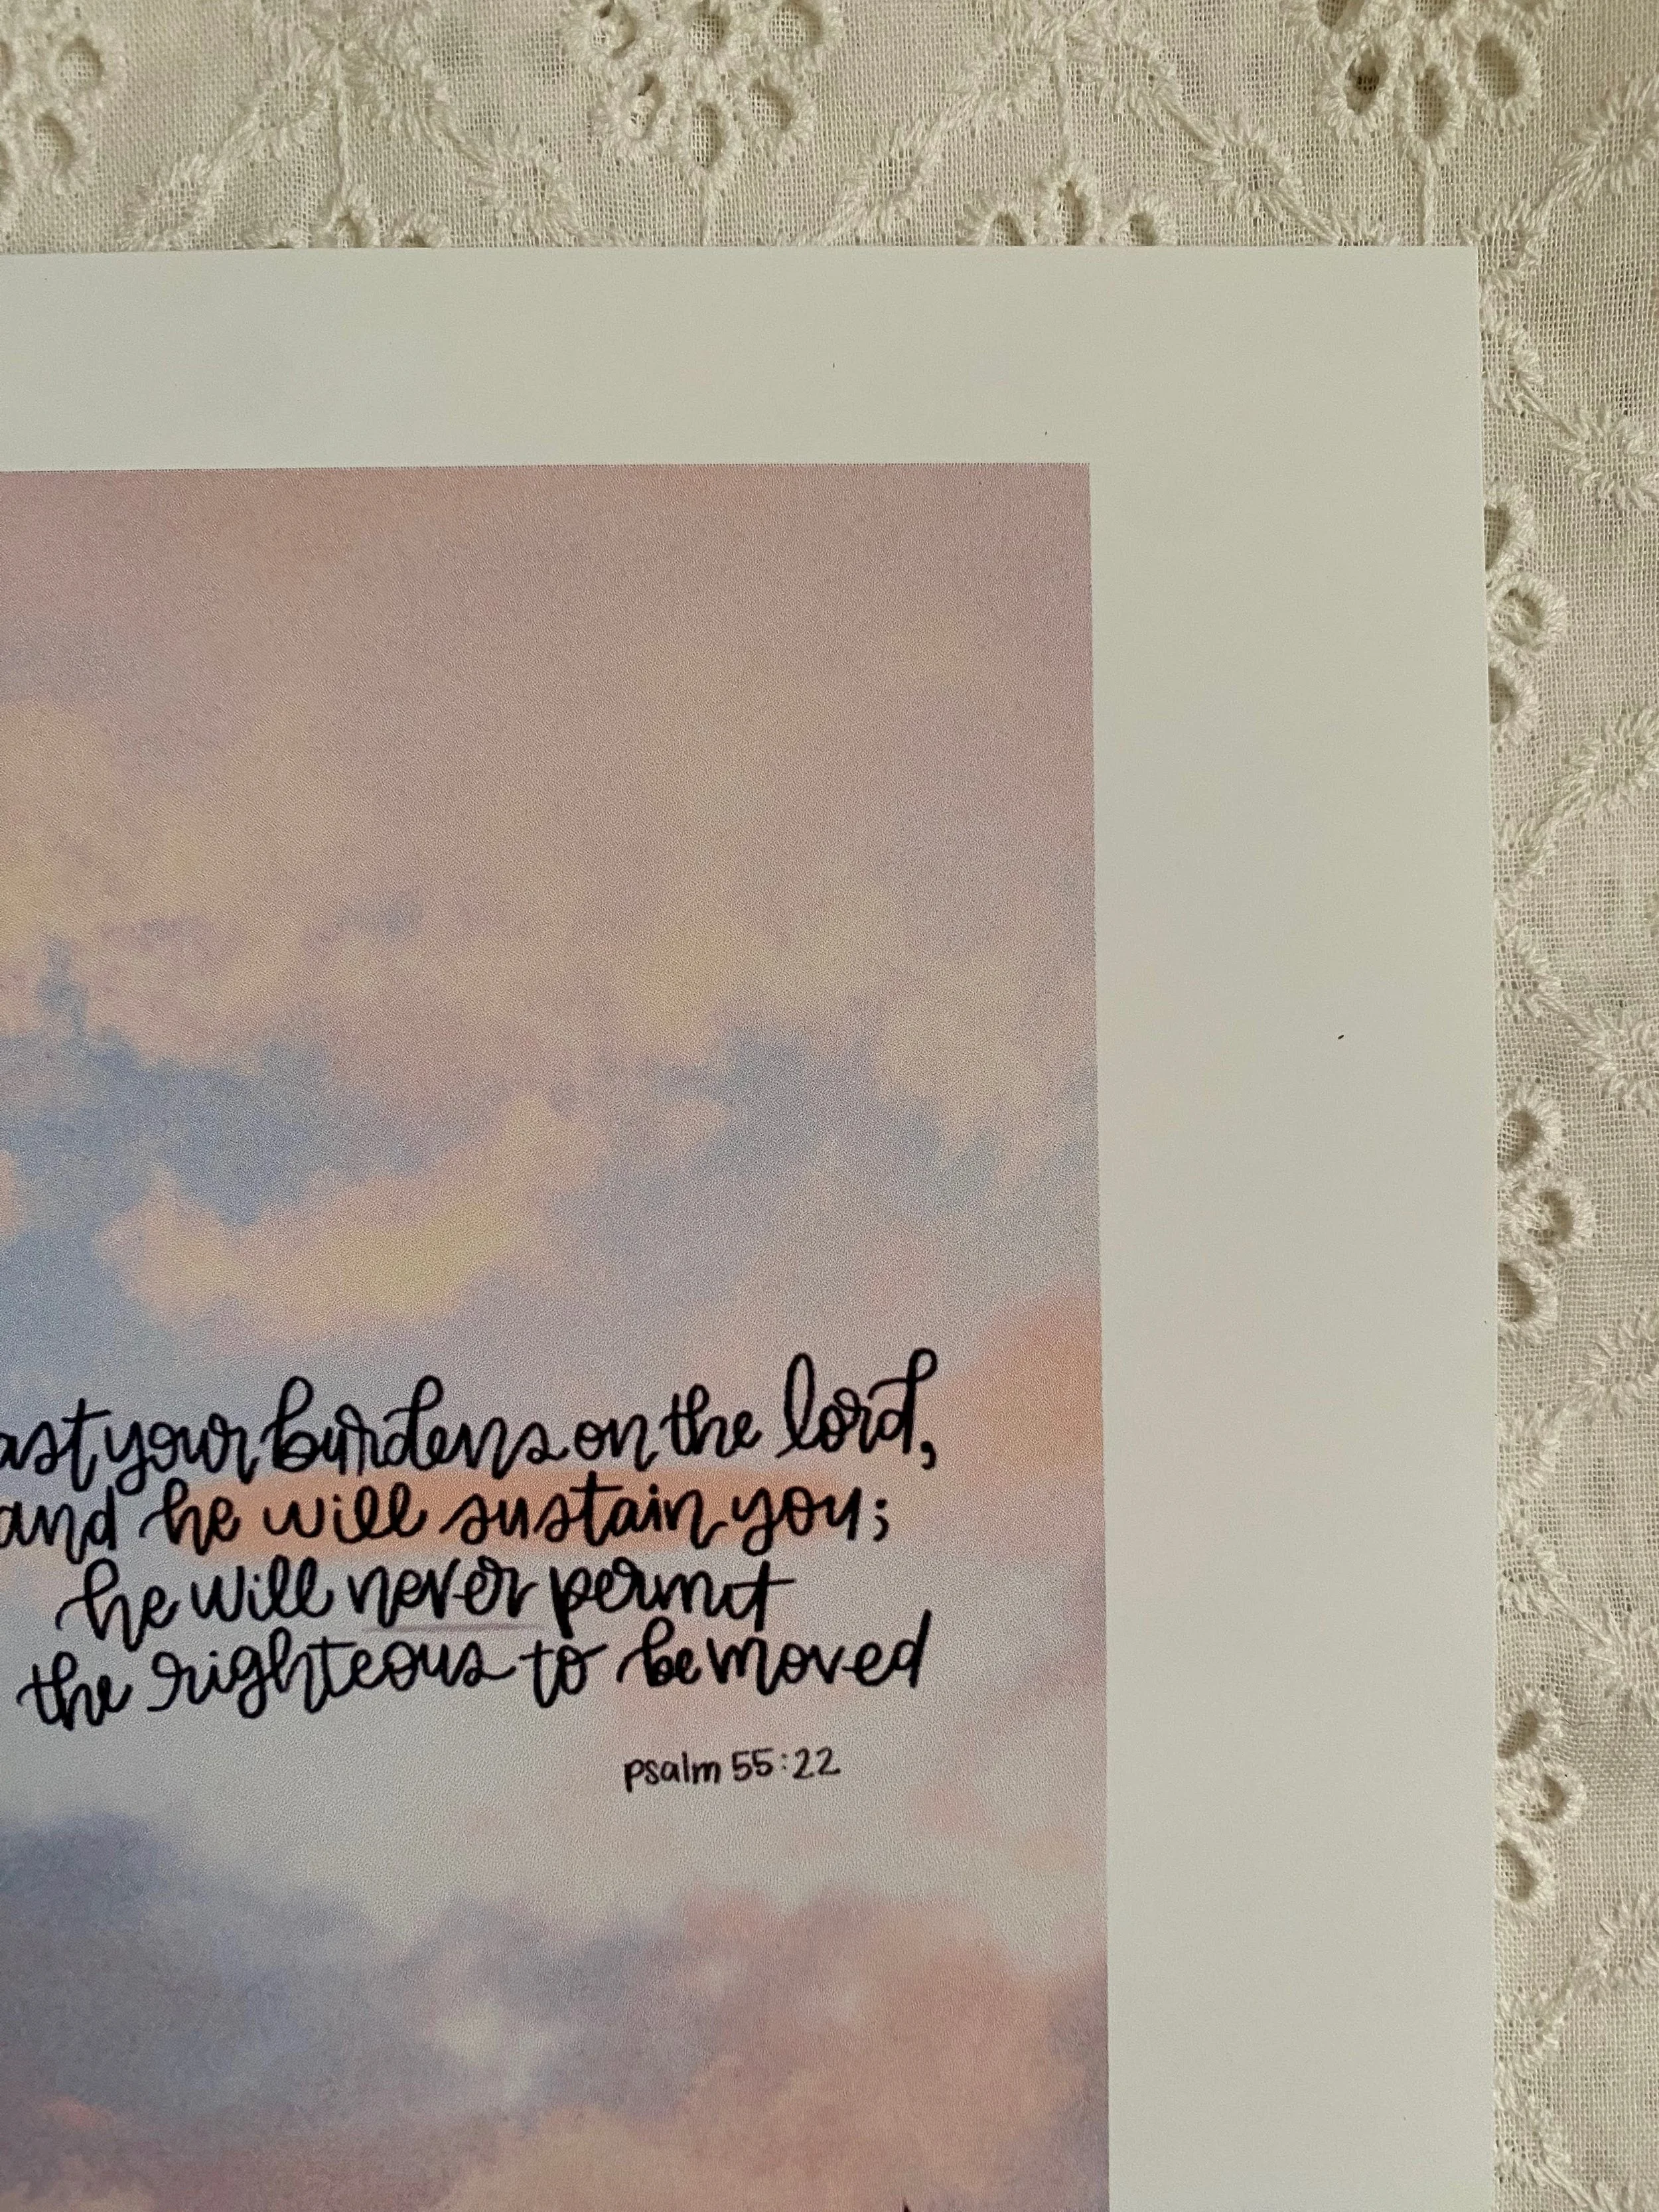 ast your burdens on the lord,
and he will sustain you;
he will never permit
the righteous to be moved
psalm 55:22